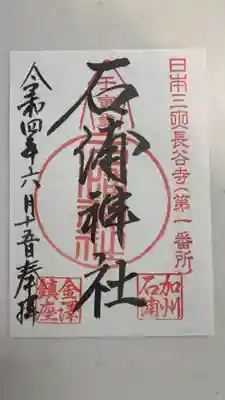 日本三所長谷寺(第一番所)
石浦神社
令和四年六月十五日奉拝
加州
石浦
金澤
鎮座